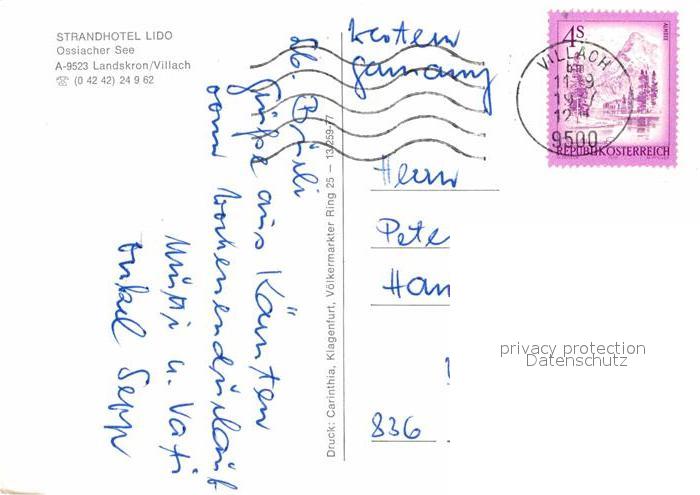 STRANDHOTEL LIDO
Ossiacher See
A-9523 Landskron/Villach
☎ (0 42 42) 24 9 62
Western
Germany
4S
ALMSEE
REPUBLIK ÖSTERREICH
VILLACH
9500
Lb.
Grüße aus Kärnten
vom Wochenendurlaub
Mutti u. Vati
Onkel Sepp
Druck: Carinthia, Klagenfurt, Völkermarkter Ring 25 – 13/259-77
Herrn
Pete
Han
836
privacy protection
Datenschutz